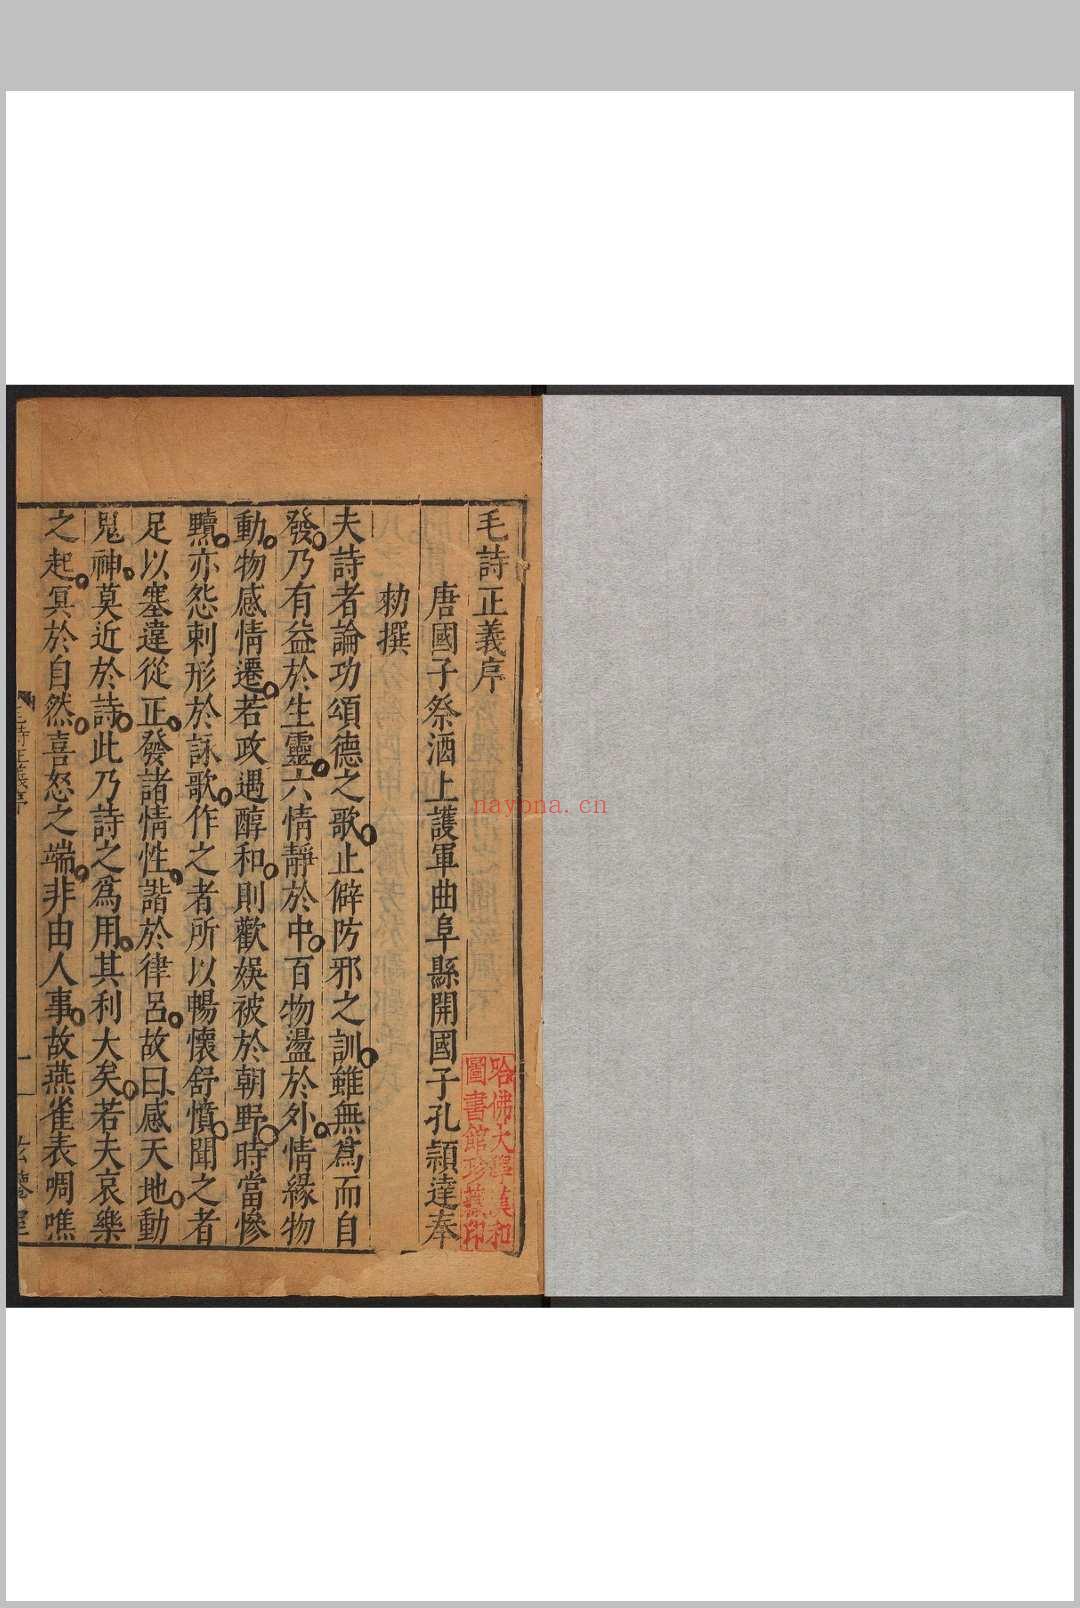 毛詩正義序
唐國子祭酒上護軍曲阜縣開國子孔頴達奉
勑撰
夫詩者論功頌德之歌止僻防邪之訓雖無爲而自
發乃有益於生靈六情靜於中百物盪於外情緣物
動物感情遷若政遇醇和則歡娛被於朝野時當慘
黷亦怨刺形於詠歌作之者所以暢懷舒憤聞之者
足以塞違從正發諸情性諧於律呂故曰感天地動
鬼神莫近於詩此乃詩之爲用其利大矣若夫哀樂
之起冥於自然喜怒之端非由人事故燕雀表啁噍
毛詩正義序
一
哈佛大學漢和
圖書館珍藏印
naypna.cn